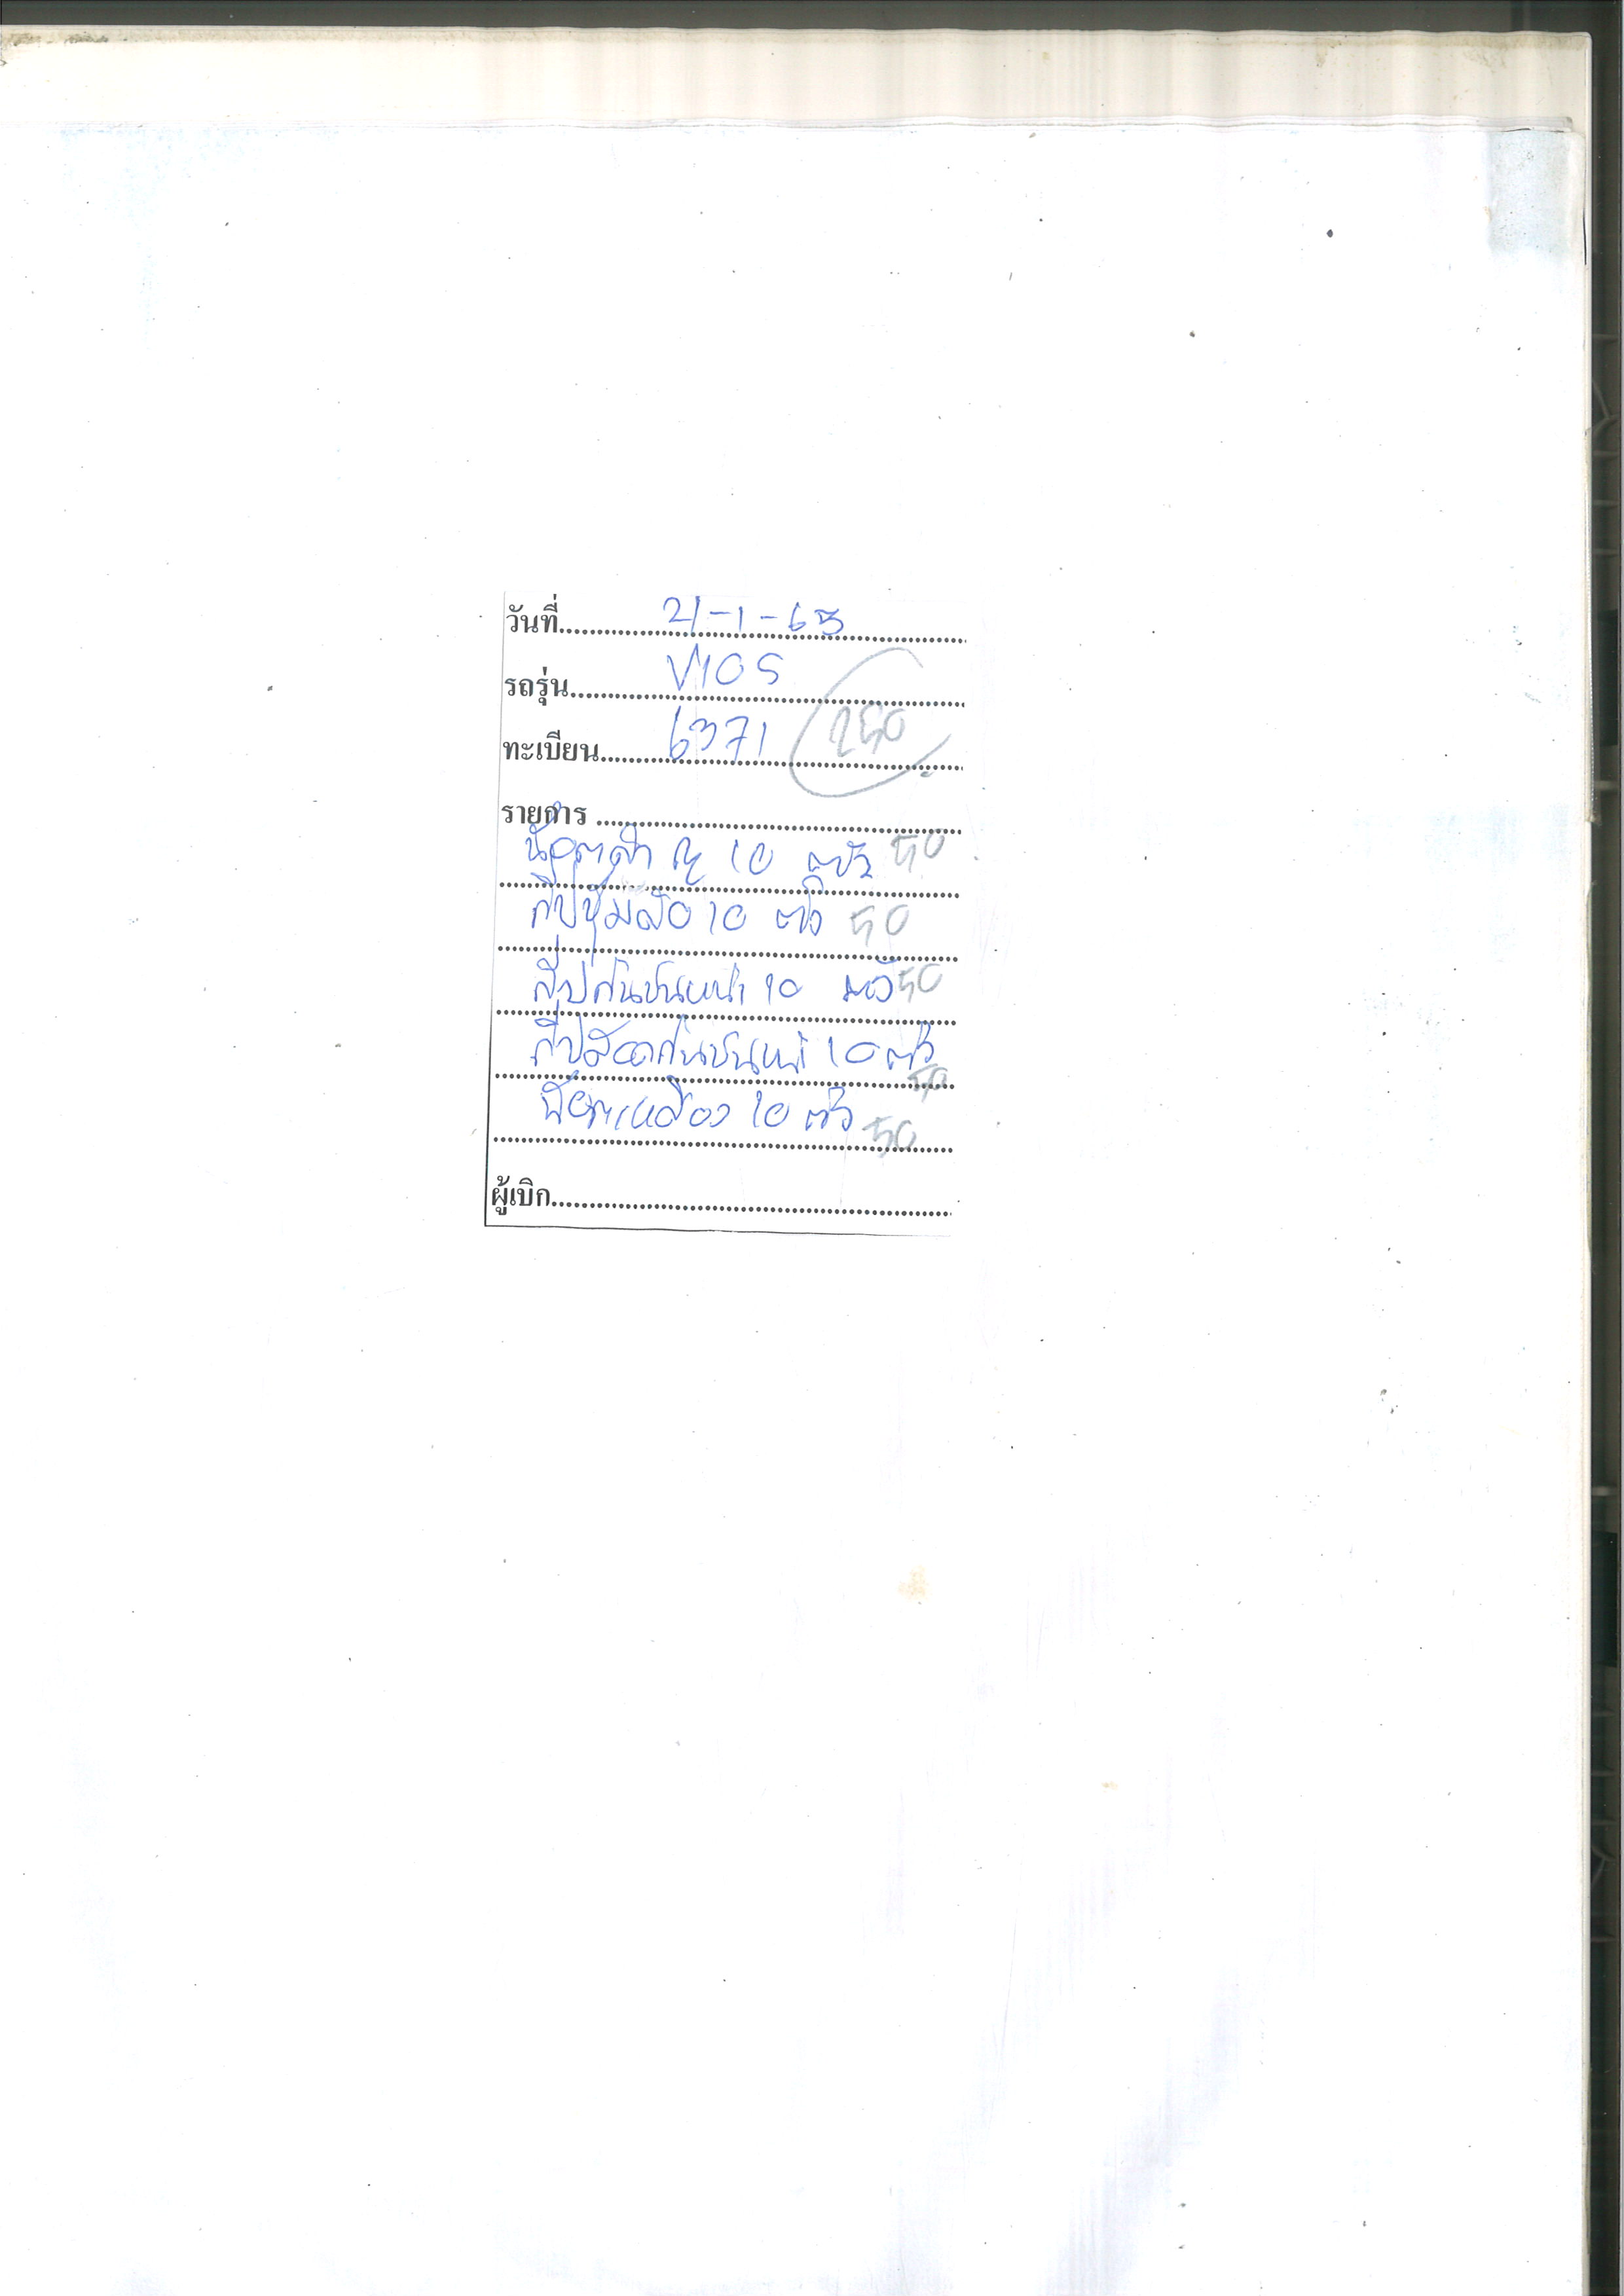 วันที่ 21-1-63
รถรุ่น VIOS
ทะเบียน 6371 250
รายการ
น๊อตดำ 10 ตัว 50
กิ๊ปซุ้มล้อ 10 ตัว 50
กิ๊ปกันชนหน้า 10 ตัว 50
กิ๊ปล๊อคกันชนหน้า 10 ตัว
50
น๊อตเหลือง 10 ตัว 50
ผู้เบิก